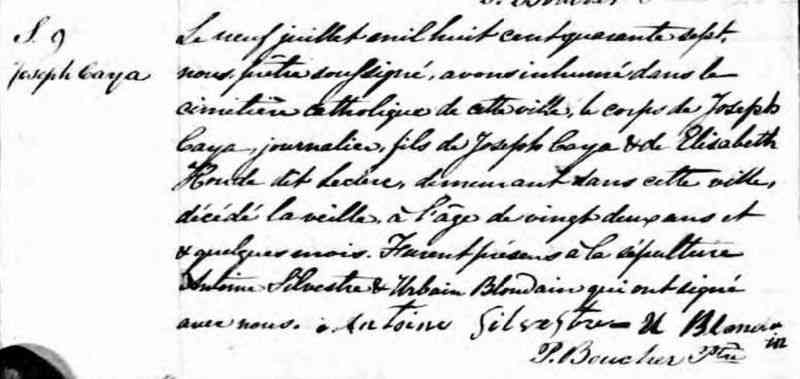 S. 9
Joseph Caya
Le neuf juillet mil huit cent quarante sept,
nous, prêtre soussigné, avons inhumé dans le
cimetière catholique de cette ville, le corps de Joseph
Caya, journalier, fils de Joseph Caya & de Elisabeth
Houde dit Leclerc, demeurant dans cette ville,
décédé la veille, à l'âge de vingt deux ans et
& quelques mois. Furent présens à la sépulture
Antoine Silvestre & Urbain Blondain qui ont signé
avec nous. Antoine Silvestre U Blondain
P. Boucher Ptre